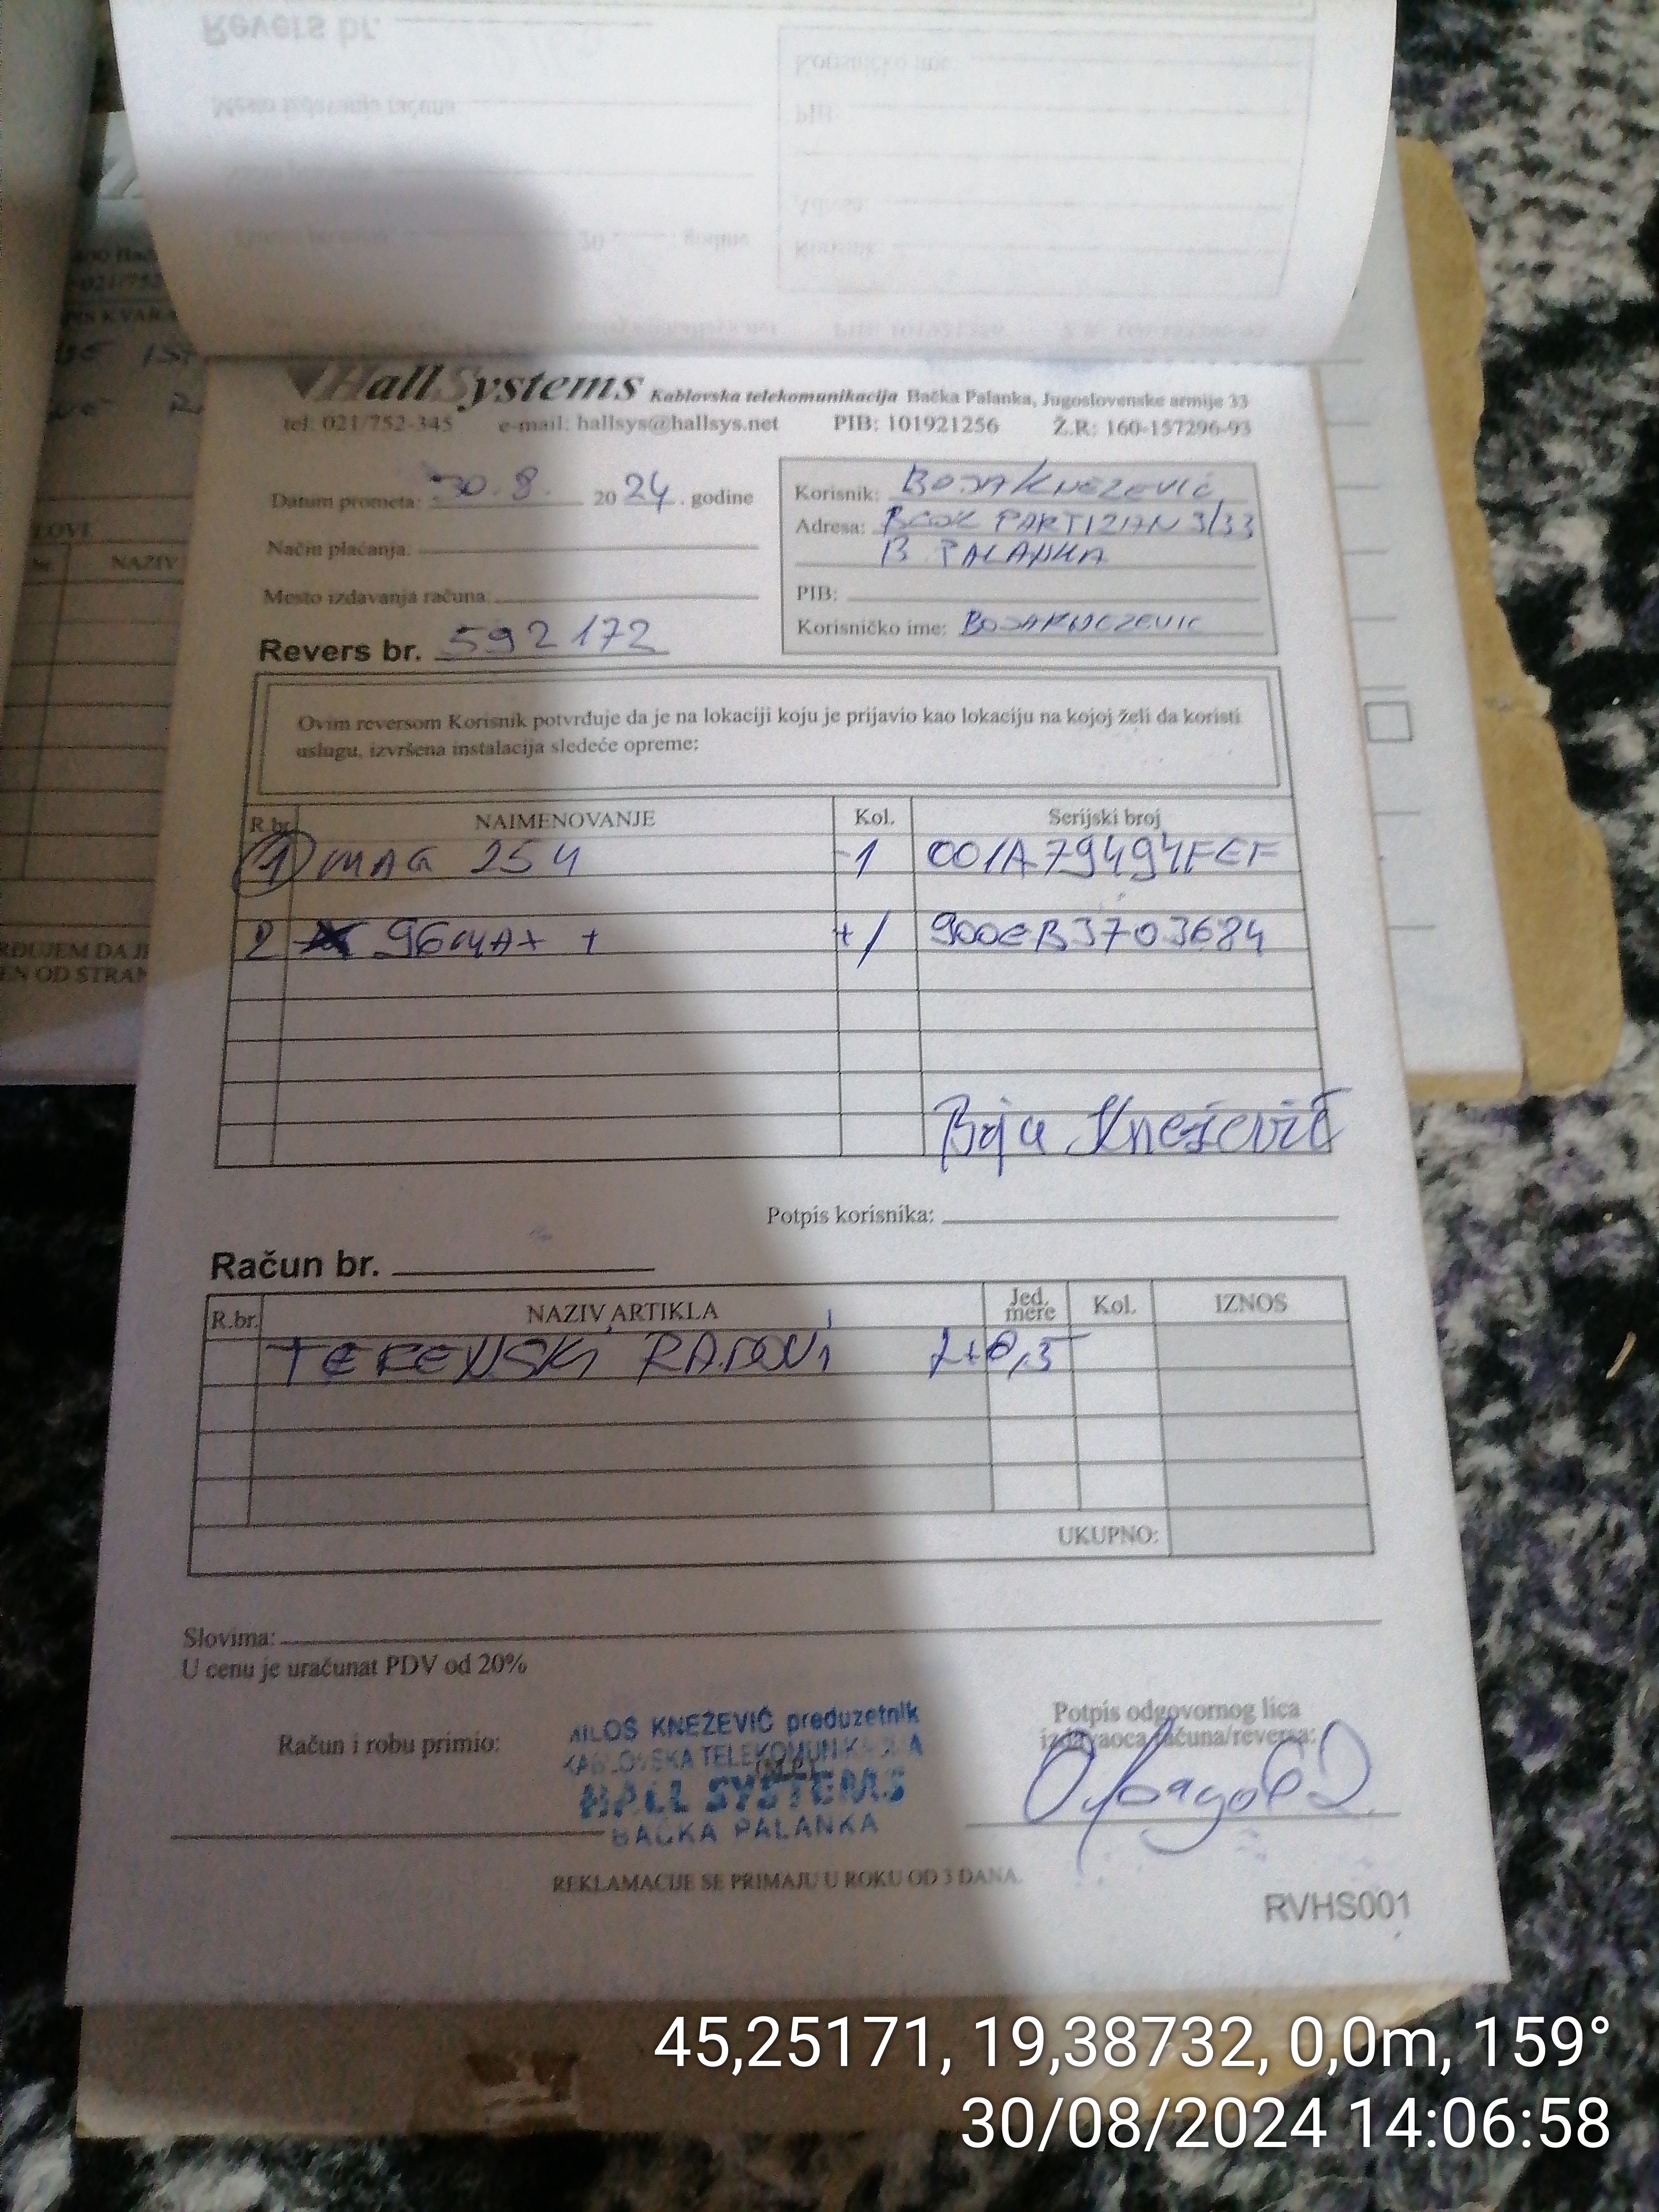 Revers br.
Hall Systems Kablovska telekomunikacija Bačka Palanka, Jugoslovenske armije 33
tel: 021/752-345 e-mail: hallsys@hallsys.net PIB: 101921256 Ž.R: 160-157296-93
Datum prometa: 30.8. 2024. godine
Način plaćanja:
Mesto izdavanja računa:
Revers br. 592172
Korisnik: BOJA KNEZEVIĆ
Adresa: BLOK PARTIZAN 3/33
B. PALANKA
PIB:
Korisničko ime: BOJAKNEZEVIC
Ovim reversom Korisnik potvrđuje da je na lokaciji koju je prijavio kao lokaciju na kojoj želi da koristi
uslugu, izvršena instalacija sledeće opreme:
R.br. NAIMENOVANJE Kol. Serijski broj
1 MAG 254 -1 001A79494FEF
2 96MAX + +1 900EB3703684
Boja Knežević
Potpis korisnika:
Račun br.
R.br. NAZIV ARTIKLA Jed. mere Kol. IZNOS
TERENSKI RADOVI
UKUPNO:
Slovima:
U cenu je uračunat PDV od 20%
Račun i robu primio:
MILOŠ KNEŽEVIĆ preduzetnik
KABLOVSKA TELEKOMUNIKACIJA
HALL SYSTEMS
BAČKA PALANKA
Potpis odgovornog lica
izdavaoca računa/reversa:
REKLAMACIJE SE PRIMAJU U ROKU OD 3 DANA.
RVHS001
45,25171, 19,38732, 0,0m, 159°
30/08/2024 14:06:58